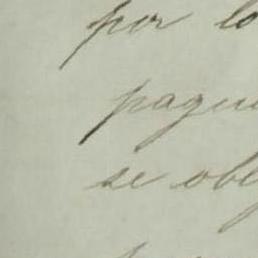 por lo
pague
se obl